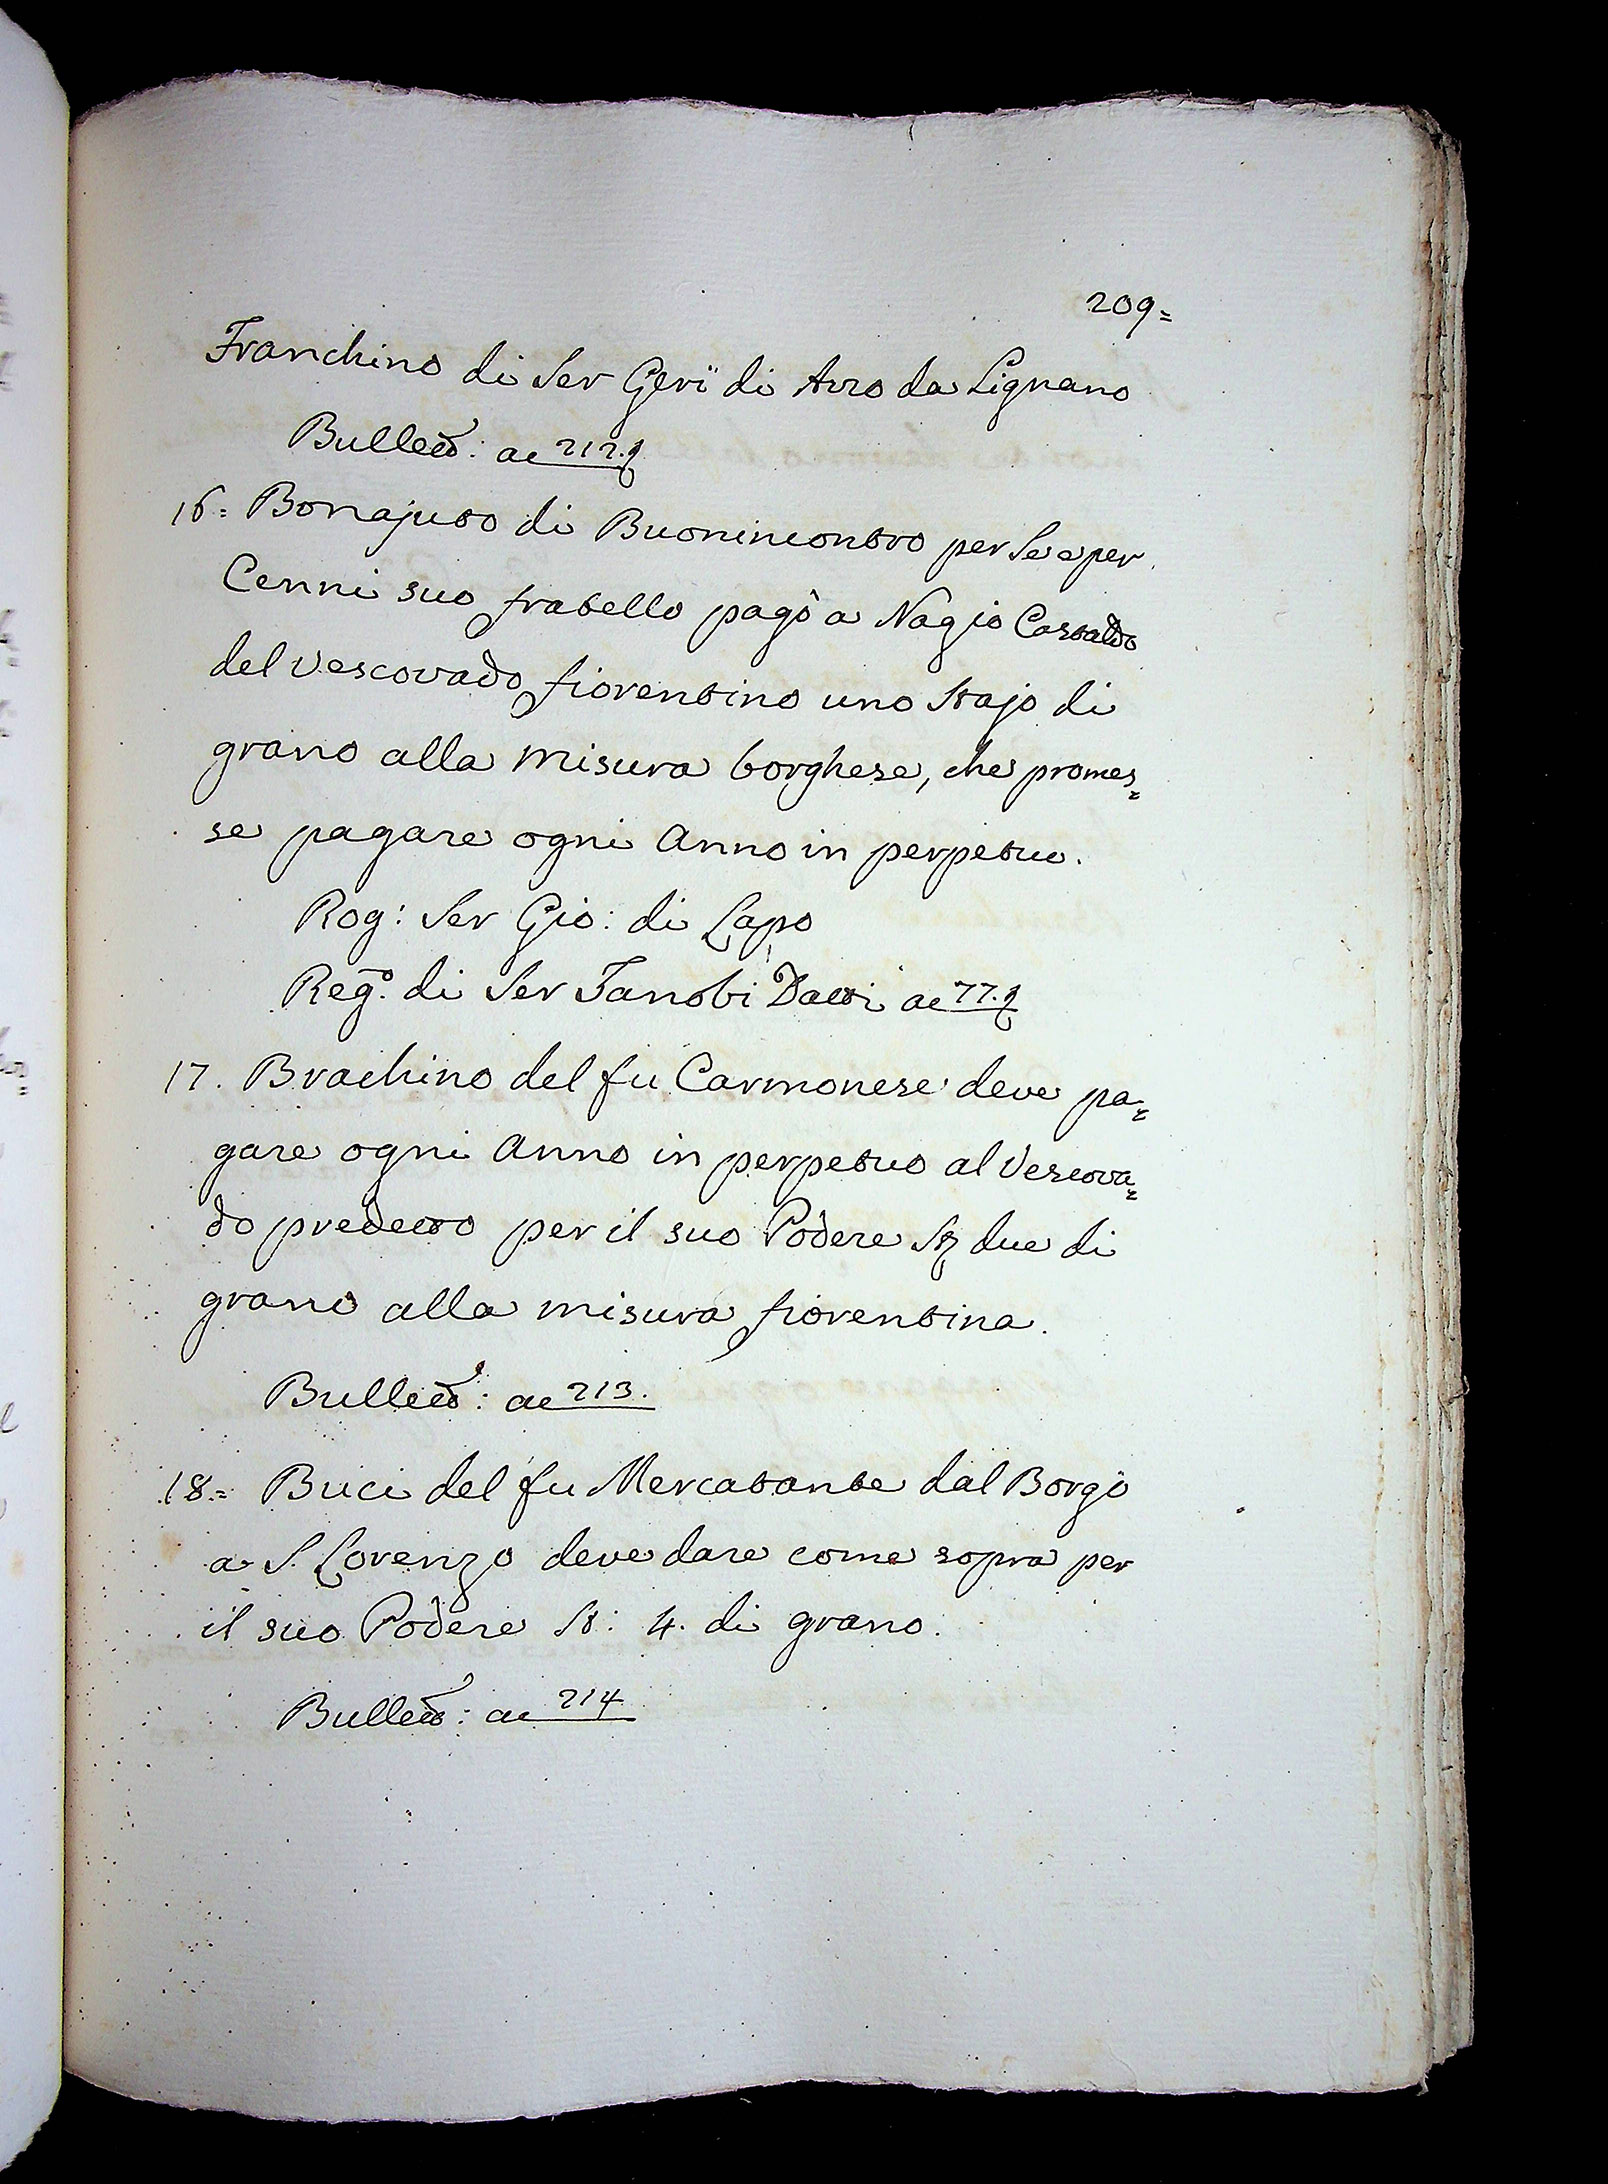 209=
Franchino di Ser Geri di Arro da Lignano
Bullett: ac 212.
16= Bonajuto di Buonincontro per se e per
Cenni suo fratello pagò a Nagio Castaldo
del Vescovado fiorentino uno stajo di
grano alla misura borghese, che promes=
se pagare ogni Anno in perpetuo.
Rog: Ser Gio: di Lapo
Reg.º di Ser Tanobi Datti ac 77.
17. Brachino del fu Carmonese deve pa=
gare ogni Anno in perpetuo al Vescova=
do predetto per il suo Podere St due di
grano alla misura fiorentina.
Bullett: ac 213.
18= Buci del fu Mercatante dal Borgo
a S. Lorenzo deve dare come sopra per
il suo Podere St: 4. di grano.
Bullett: ac 214